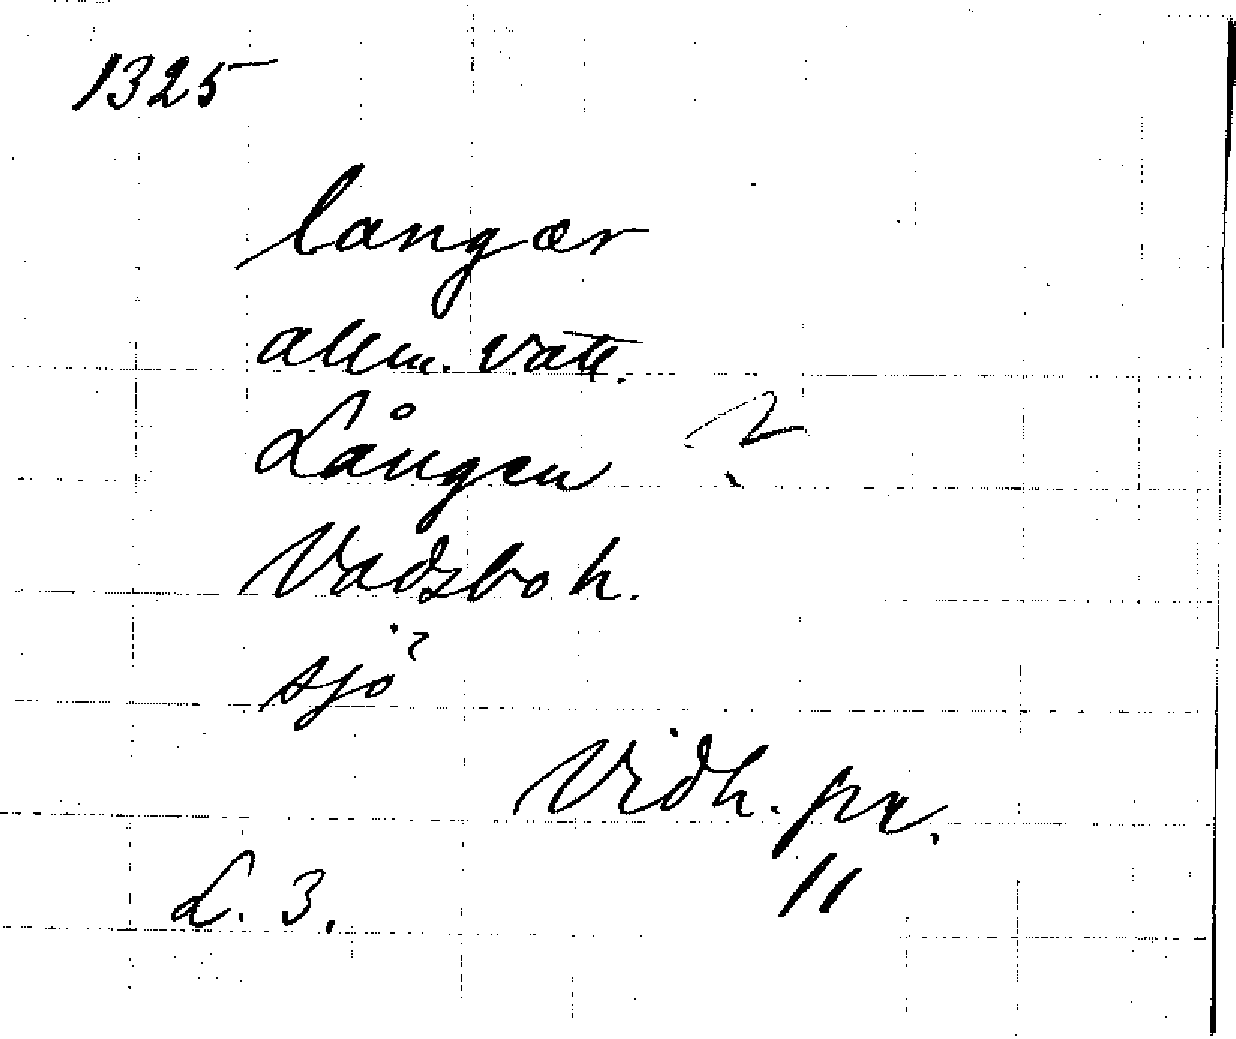 1325
langær
allm. vatt.
Lången ?
Vadsbo h.
sjö
Vidh. pr.
L. 3. 11